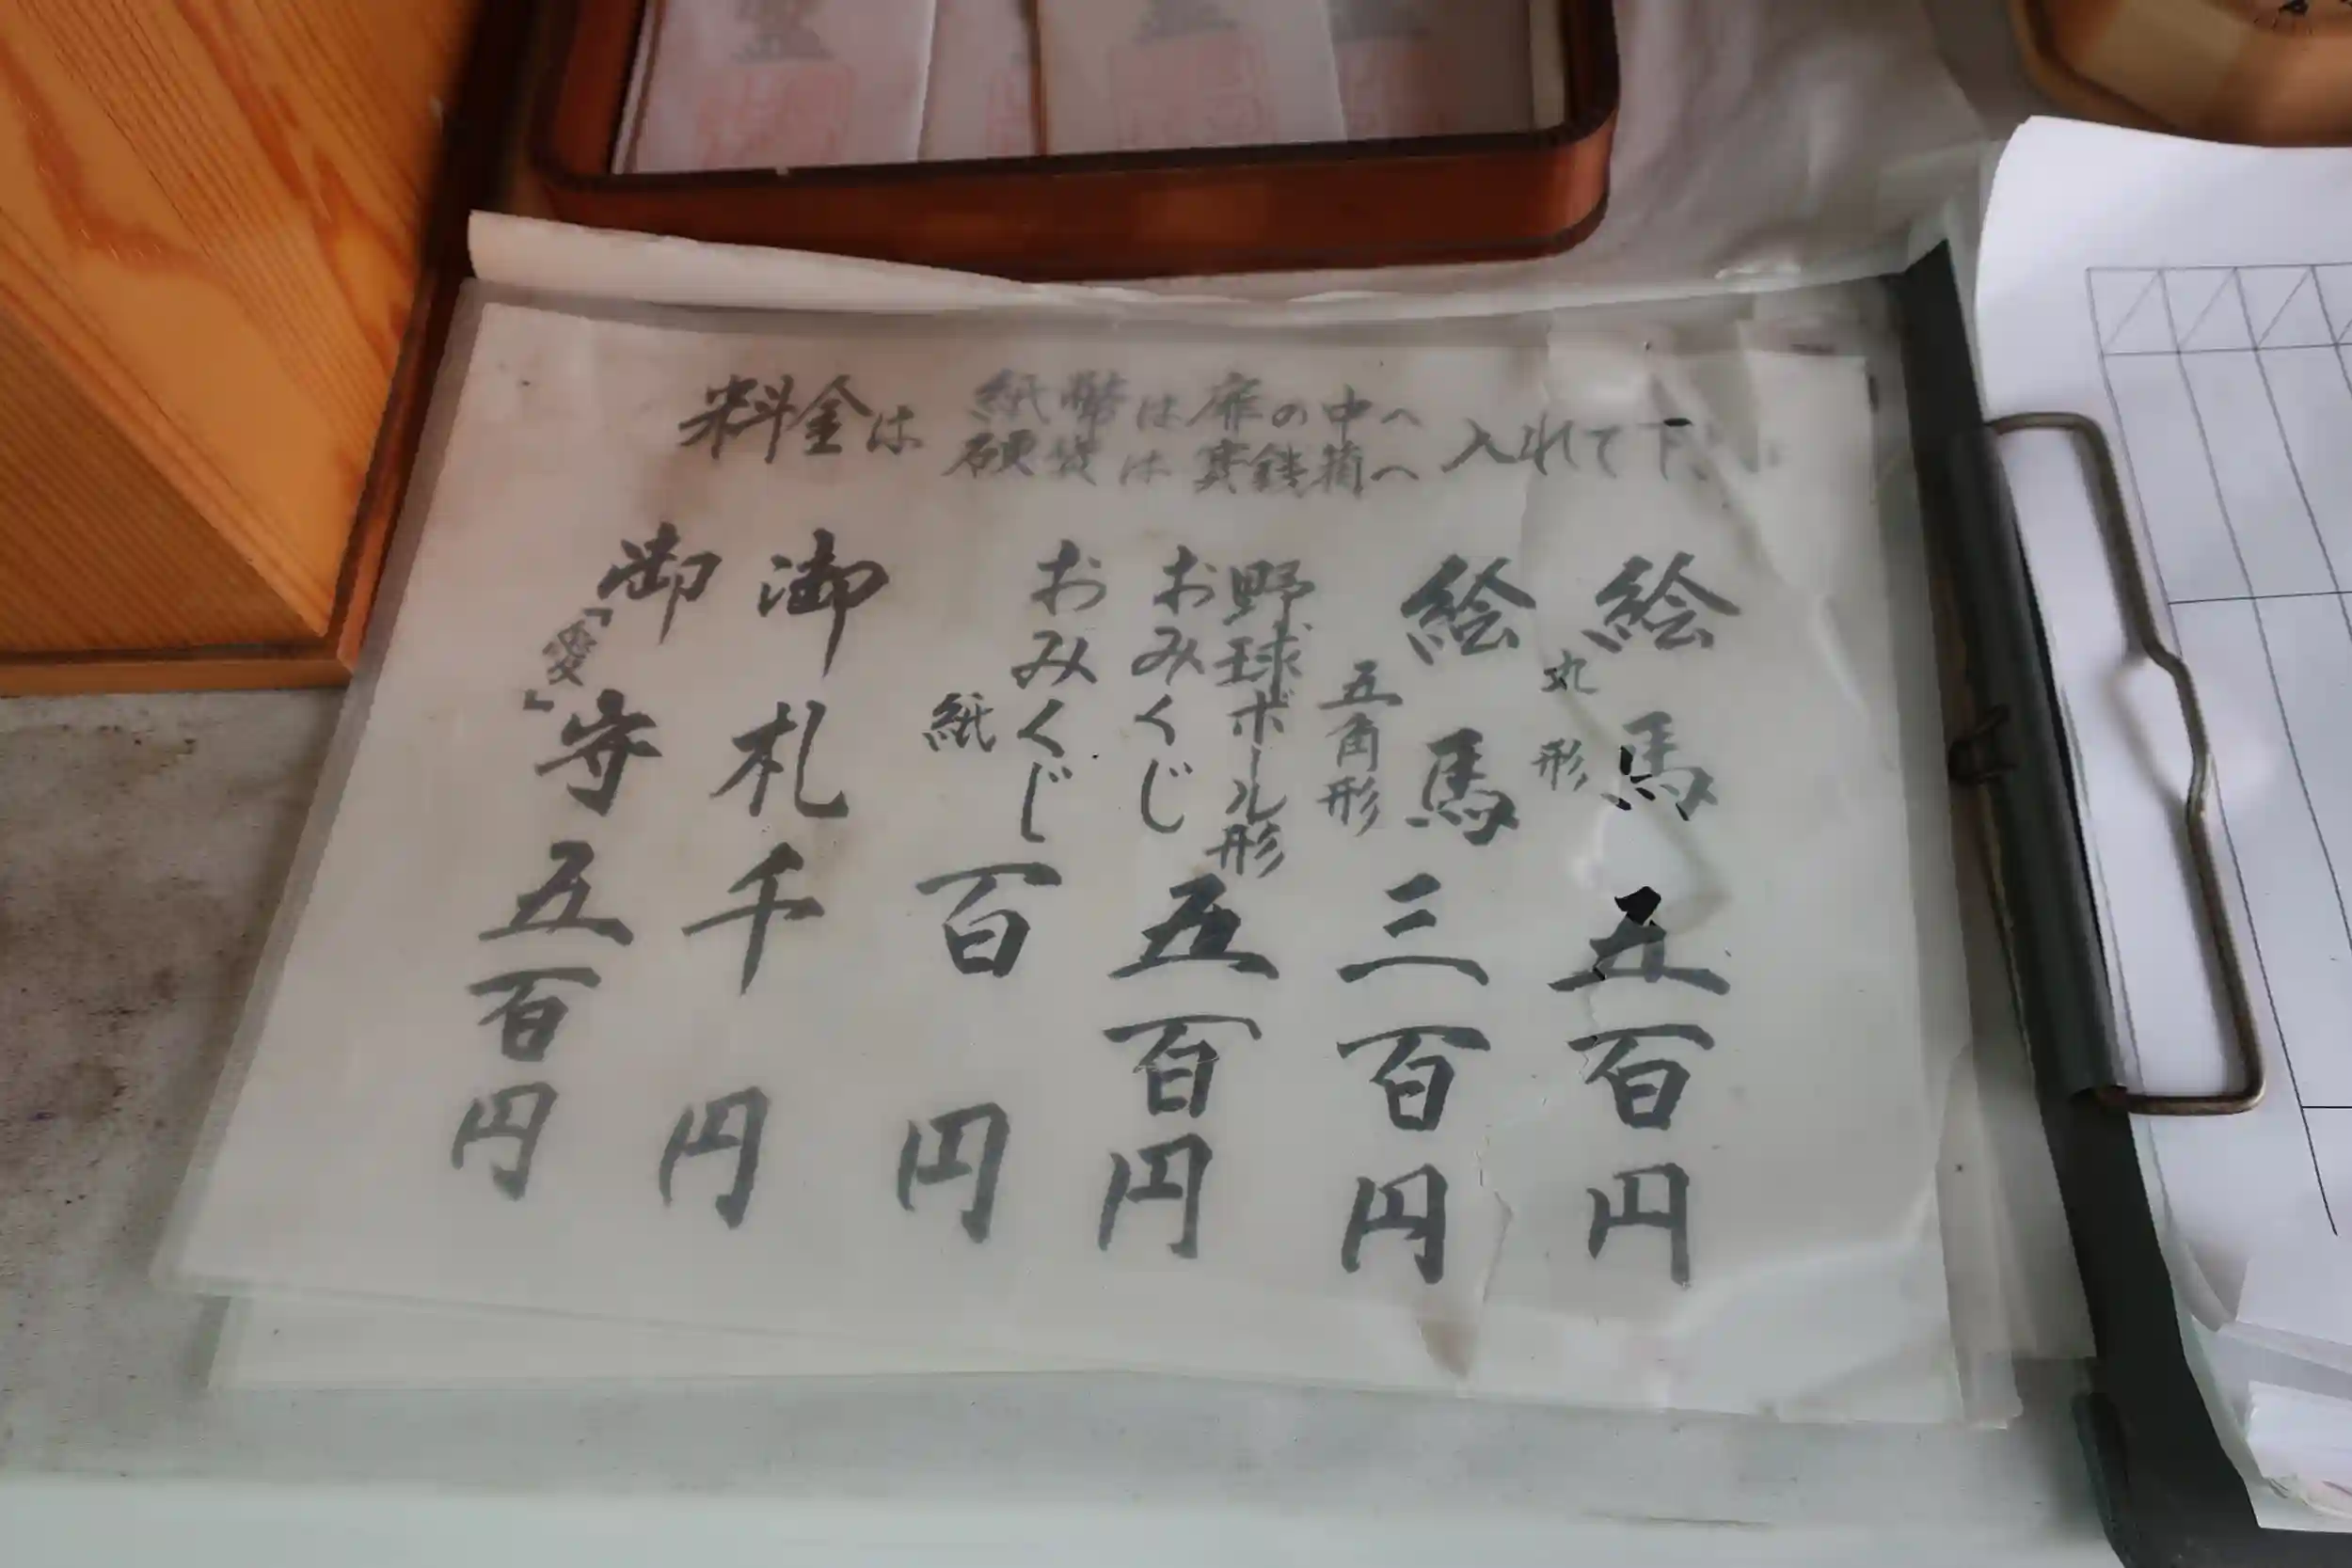 料金は 紙幣は扉の中へ 入れて下
硬貨は賽銭箱へ
絵馬 丸形 五百円
絵馬 五角形 三百円
野球ボール形
おみくじ 五百円
おみくじ 紙 百円
御札 千円
御守 「愛」 五百円